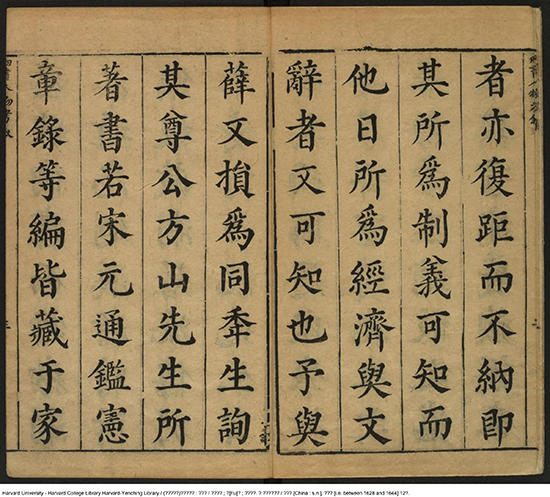 者亦復距而不納即
其所爲制義可知而
他日所爲經濟與文
辭者又可知也予與
薛又損爲同秊生詢
其尊公方山先生所
著書若宋元通鑑憲
章錄等編皆藏于家
Harvard University - Harvard College Library Harvard-Yenching Library / (?????)????? : ??? / ???? ; ?]?u[? ; ????. ? ?????? / ??? [China : s.n.], ??? [i.e. between 1628 and 1644] 12?.